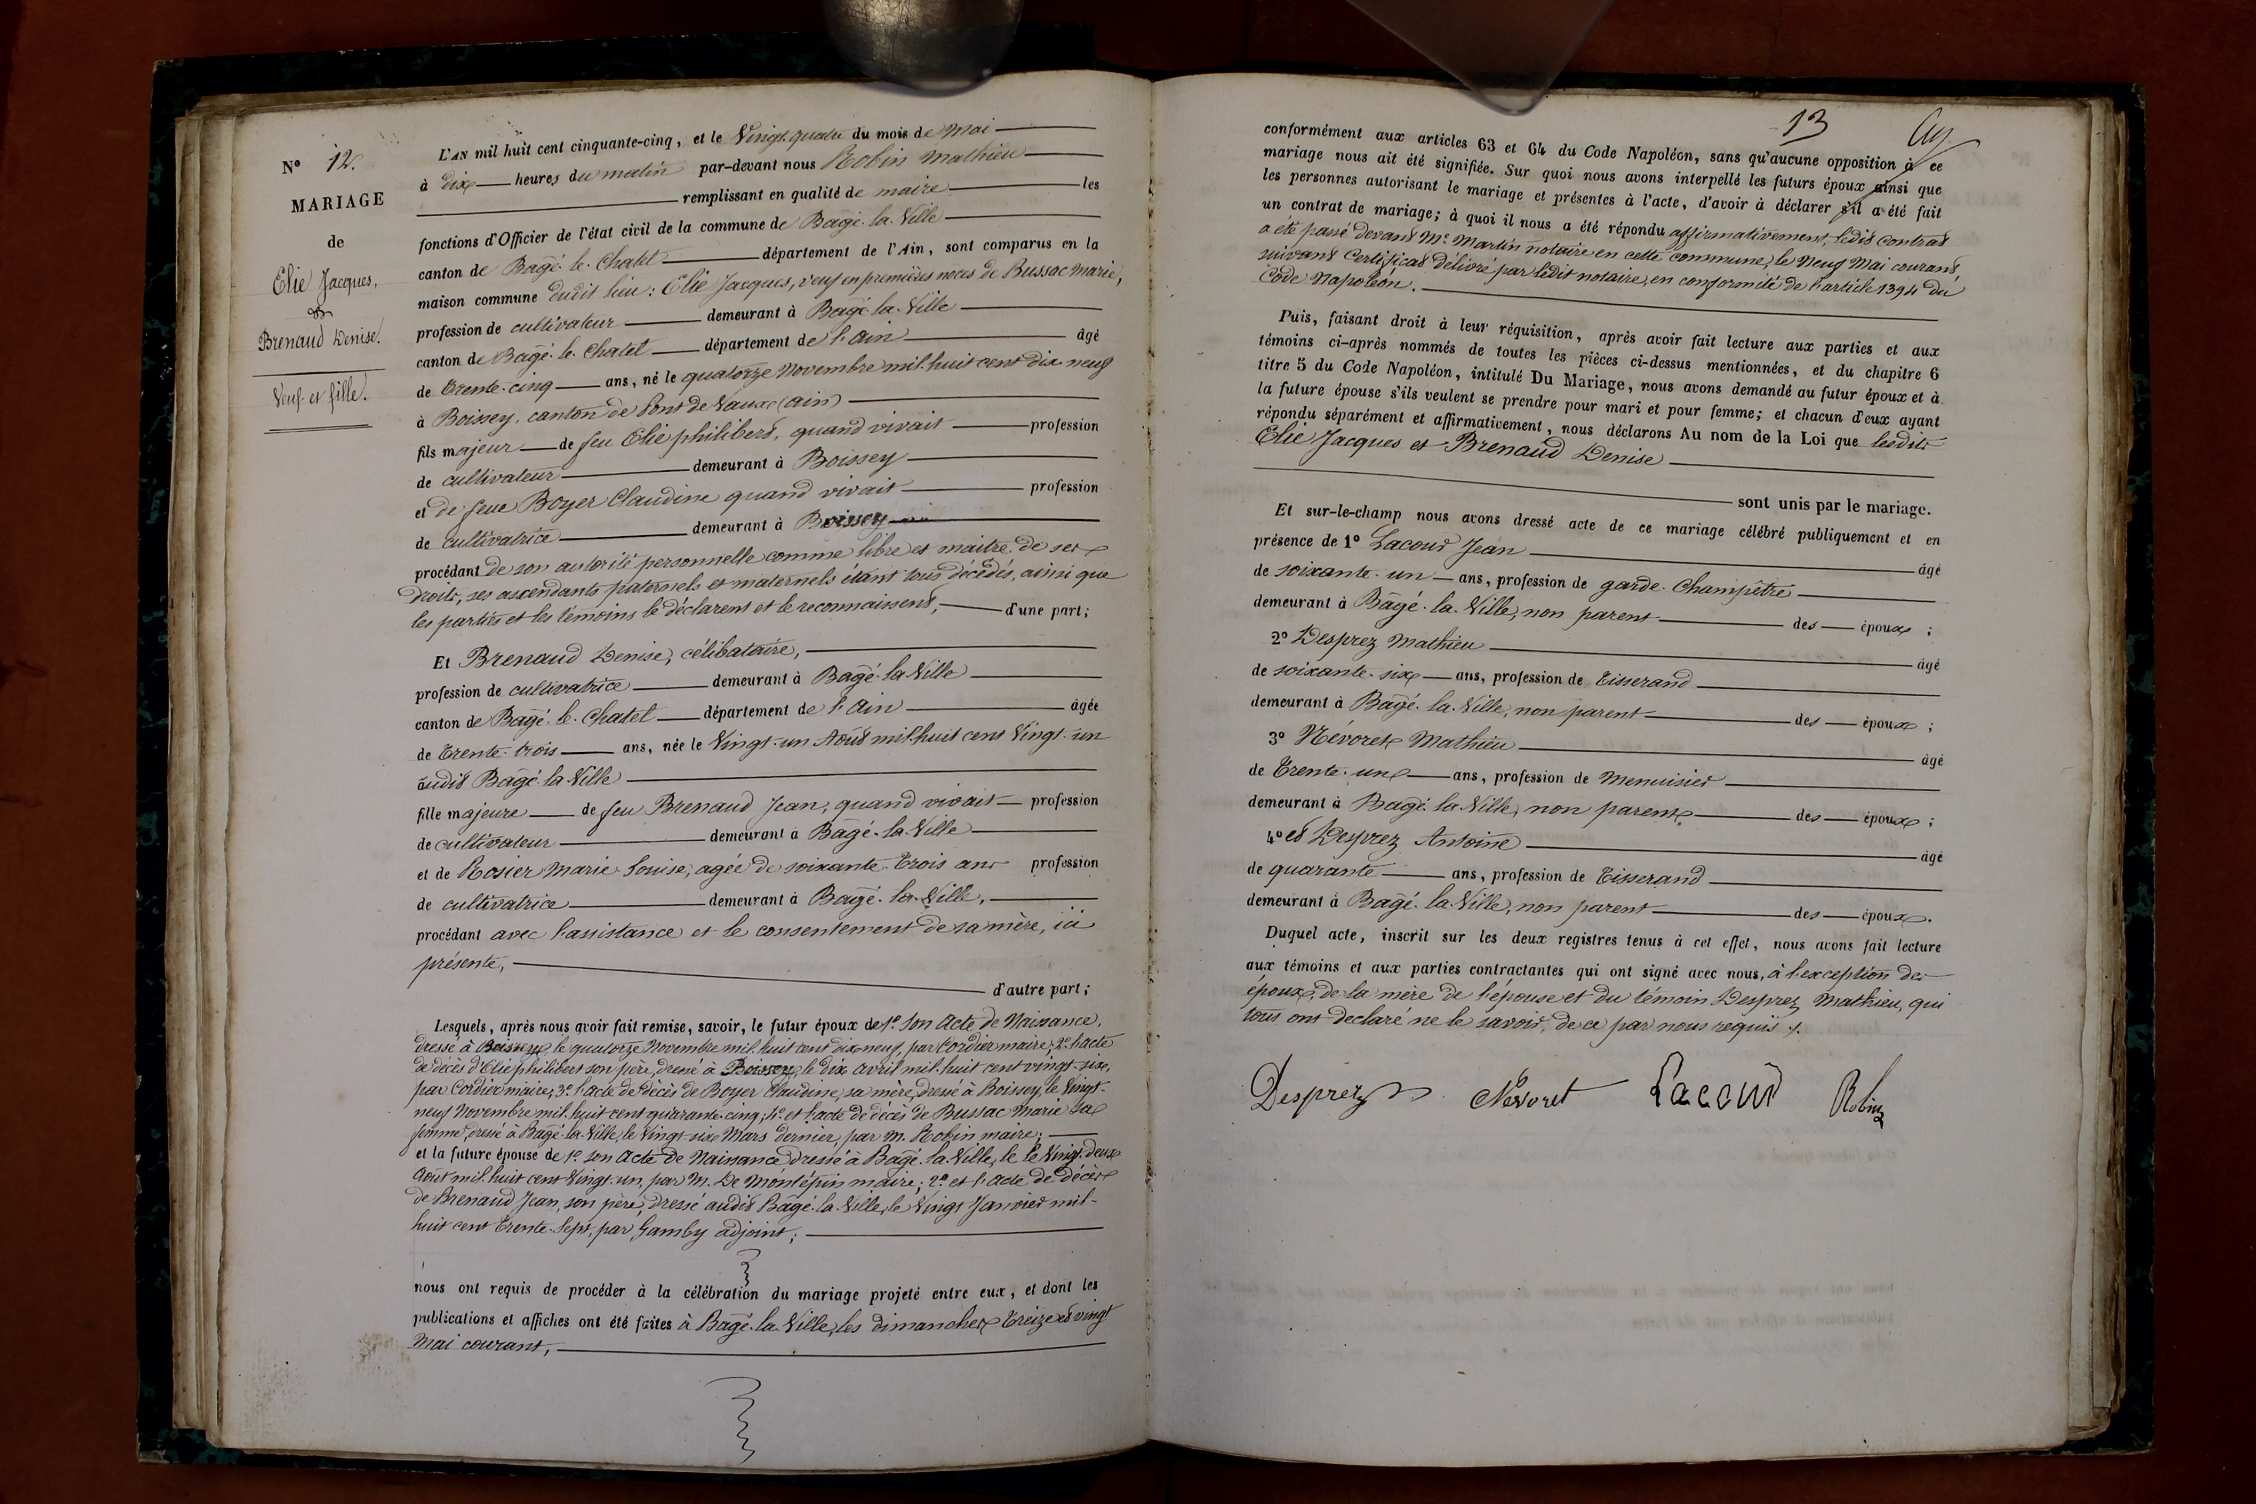 N° 12.
MARIAGE
de
Elie Jacques,
&
Brenaud Denise.
Veuf et fille.
L'AN mil huit cent cinquante-cinq, et le Vingt quatre du mois de Mai
à dix heures du matin par-devant nous Robin Mathieu
remplissant en qualité de maire les
fonctions d'Officier de l'état civil de la commune de Bagé-la-Ville
canton de Bagé-le-Chatel département de l'Ain, sont comparus en la
maison commune dudit lieu : Elie Jacques, veuf en premières noces de Bussac Marie,
profession de cultivateur demeurant à Bagé-la-Ville
canton de Bagé-le-Chatel département de l'Ain âgé
de Trente-cinq ans, né le quatorze Novembre mil-huit cent dix neuf
à Boissey, canton de Pont de Vaux (Ain)
fils majeur de feu Elie philibert, quand vivait profession
de cultivateur demeurant à Boissey
et de feue Boyer Claudine quand vivait profession
de cultivatrice demeurant à Boissey
procédant de son autorité personnelle comme libre et maitre de ses
droits, ses ascendants paternels et maternels étant tous décédés, ainsi que
les parties et les témoins le déclarent et le reconnaissent, d'une part ;
Et Brenaud Denise, célibataire,
profession de cultivatrice demeurant à Bagé-la-Ville
canton de Bagé-le-Chatel département de l'Ain âgée
de Trente-trois ans, née le Vingt-un Août mil-huit cent Vingt-un
audit Bagé-la-Ville
fille majeure de feu Brenaud Jean, quand vivait profession
de cultivateur demeurant à Bagé-la-Ville
et de Rosier Marie Louise, agée de soixante-Trois ans profession
de cultivatrice demeurant à Bagé-la-Ville,
procédant avec l'assistance et le consentement de sa mère, ici
présente,
d'autre part ;
Lesquels, après nous avoir fait remise, savoir, le futur époux de 1° son Acte de Naissance,
dressé à Boissey, le quatorze Novembre mil-huit cent dix-neuf, par Cordier maire ; 2° l'acte
de décès d'Elie philibert son père, dressé à Boissey, le dix Avril mil-huit cent vingt-six,
par Cordier maire ; 3° l'acte de décès de Boyer Claudine, sa mère, dressé à Boissey, le Vingt-
neuf Novembre mil-huit cent quarante-cinq ; 4° et l'acte de décès de Bussac Marie sa
femme, dressé à Bagé-la-Ville, le Vingt-six Mars dernier, par M. Robin maire ;
et la future épouse de 1° son Acte de Naissance, dressé à Bagé-la-Ville, le le Vingt-deux
Août mil-huit cent Vingt-un, par M. De Montépin maire ; 2° et l'acte de décès
de Brenaud Jean, son père, dressé audit Bagé-la-Ville, le Vingt Janvier mil-
huit cent Trente-Sept, par Gamby adjoint ;
nous ont requis de procéder à la célébration du mariage projeté entre eux, et dont les
publications et affiches ont été faites à Bagé-la-Ville, les dimanches Treize et vingt
Mai courant,
13
conformément aux articles 63 et 64 du Code Napoléon, sans qu'aucune opposition à ce
mariage nous ait été signifiée. Sur quoi nous avons interpellé les futurs époux ainsi que
les personnes autorisant le mariage et présentes à l'acte, d'avoir à déclarer s'il a été fait
un contrat de mariage ; à quoi il nous a été répondu affirmativement, ledit contrat
a été passé devant Me Martin notaire en cette commune, le Neuf Mai courant,
suivant Certificat délivré par ledit notaire, en conformité de l'article 1394 du
Code Napoléon.
Puis, faisant droit à leur réquisition, après avoir fait lecture aux parties et aux
témoins ci-après nommés de toutes les pièces ci-dessus mentionnées, et du chapitre 6
titre 5 du Code Napoléon, intitulé Du Mariage, nous avons demandé au futur époux et à
la future épouse s'ils veulent se prendre pour mari et pour femme ; et chacun d'eux ayant
répondu séparément et affirmativement, nous déclarons Au nom de la Loi que lesdits
Elie Jacques et Brenaud Denise
sont unis par le mariage.
Et sur-le-champ nous avons dressé acte de ce mariage célébré publiquement et en
présence de 1° Lacour Jean âgé
de soixante-un ans, profession de garde-Champêtre
demeurant à Bagé-la-Ville, non parent des époux ;
2° Desprez Mathieu âgé
de soixante-six ans, profession de Tisserand
demeurant à Bagé-la-Ville, non parent des époux ;
3° Névoret Mathieu âgé
de Trente-un ans, profession de Menuisier
demeurant à Bagé-la-Ville, non parent des époux ;
4° et Desprez Antoine âgé
de quarante ans, profession de Tisserand
demeurant à Bagé-la-Ville, non parent des époux.
Duquel acte, inscrit sur les deux registres tenus à cet effet, nous avons fait lecture
aux témoins et aux parties contractantes qui ont signé avec nous, à l'exception des
époux, de la mère de l'épouse et du témoin Desprez Mathieu, qui
tous ont declaré ne le savoir, de ce par nous requis ./.
Desprez Nevoret Lacour Robin